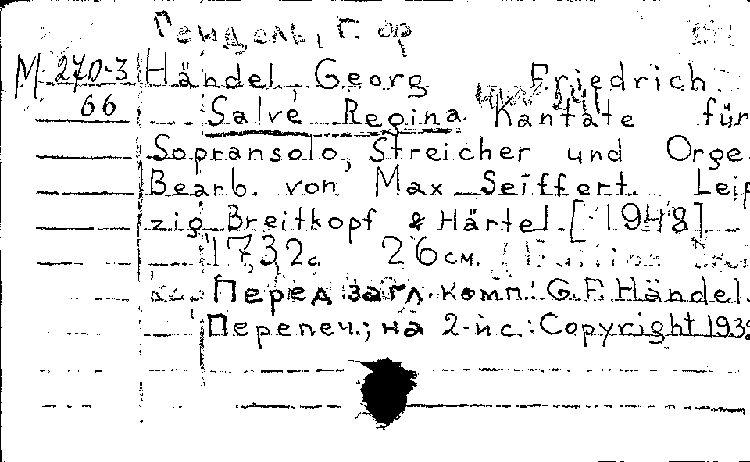 Гендель, Г. Ф
М 270-3 Händel, Georg Friedrich
66 Salve Regina. Kantate für
Sopransolo, Streicher und Orge
Bearb. von Max Seiffert. Leip
zig Breitkopf & Härtel [1948]
17,32с. 26 см.
Перед загл. комп.: G. F. Händel.
Перепеч.; на 2-й с.: Copyright 193